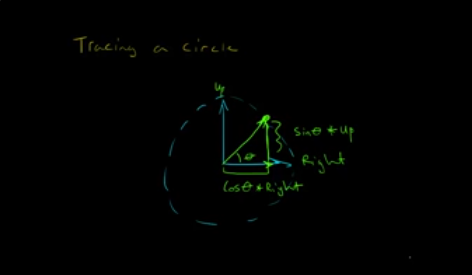 Tracing a circle
Up
sinθ * Up
θ
Right
Cosθ * Right